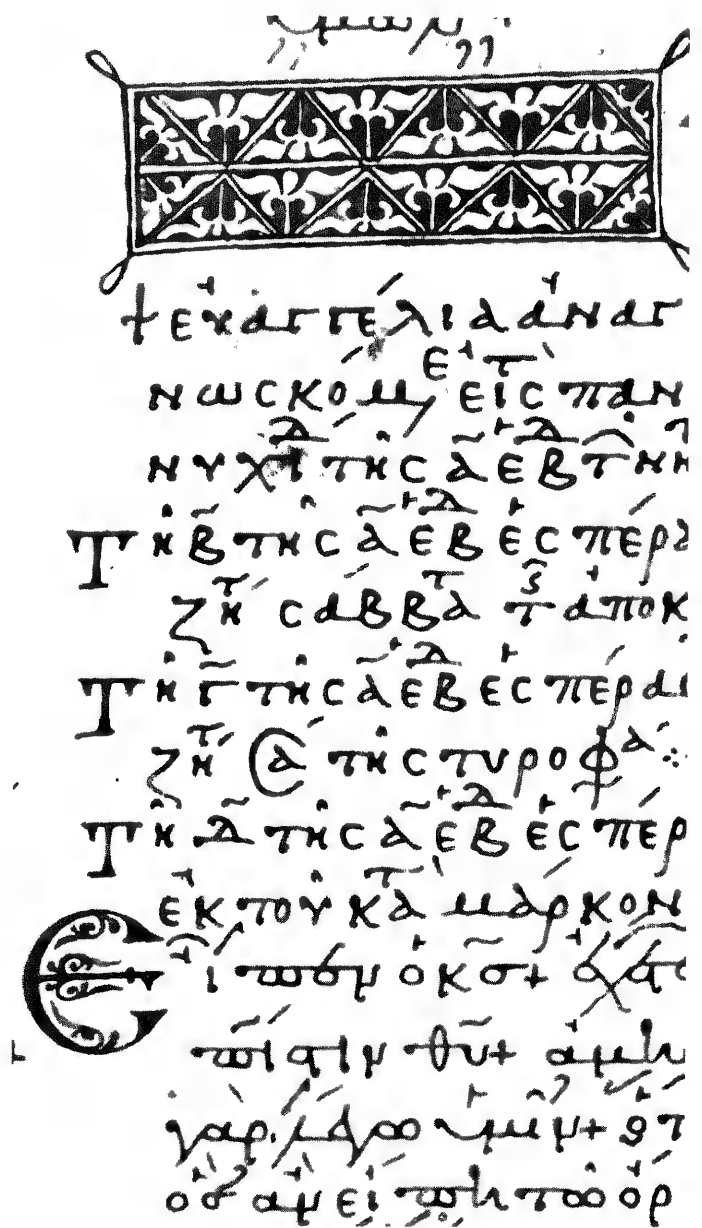 † εὐαγγέλια ἀναγ
νωσκόμ εἰς παν
νυχίδ τῆς α̃ ἑβδ τ νη
Τῇ β̃ τῆς α̃ ἑβδ ἑσπέρα
ζητ σαββα τ ἀποκ
Τῇ γ̃ τῆς α̃ ἑβδ ἑσπέραι
ζητ Σα τῆς τυροφα:
Τῇ δ̃ τῆς α̃ ἑβδ ἑσπέρ
ἐκ τοῦ κατ μάρκον
Εἶπεν ὁ κς+ ἔχετε
πίστιν θυ+ ἀμὴν
γὰρ λέγω ὑμῖν+ ὅτ
ὃς ἂν εἴπῃ τῶ ὄρ